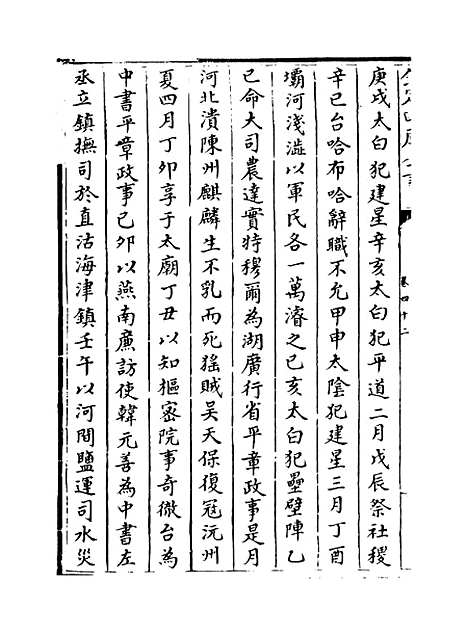 庚戌太白犯建星辛亥太白犯平道二月戊辰祭社稷
辛巳台哈布哈辭職不允甲申太陰犯建星三月丁酉
壩河淺澁以軍民各一萬濬之己亥太白犯壘壁陣乙
巳命大司農達實特穆爾為湖廣行省平章政事是月
河北潰陳州麒麟生不乳而死猺賊吳天保復冦沅州
夏四月丁卯享于太廟丁丑以知樞密院事奇徹台為
中書平章政事己卯以燕南亷訪使韓元善為中書左
丞立鎮撫司於直沽海津鎮壬午以河間鹽運司水災
卷四十二